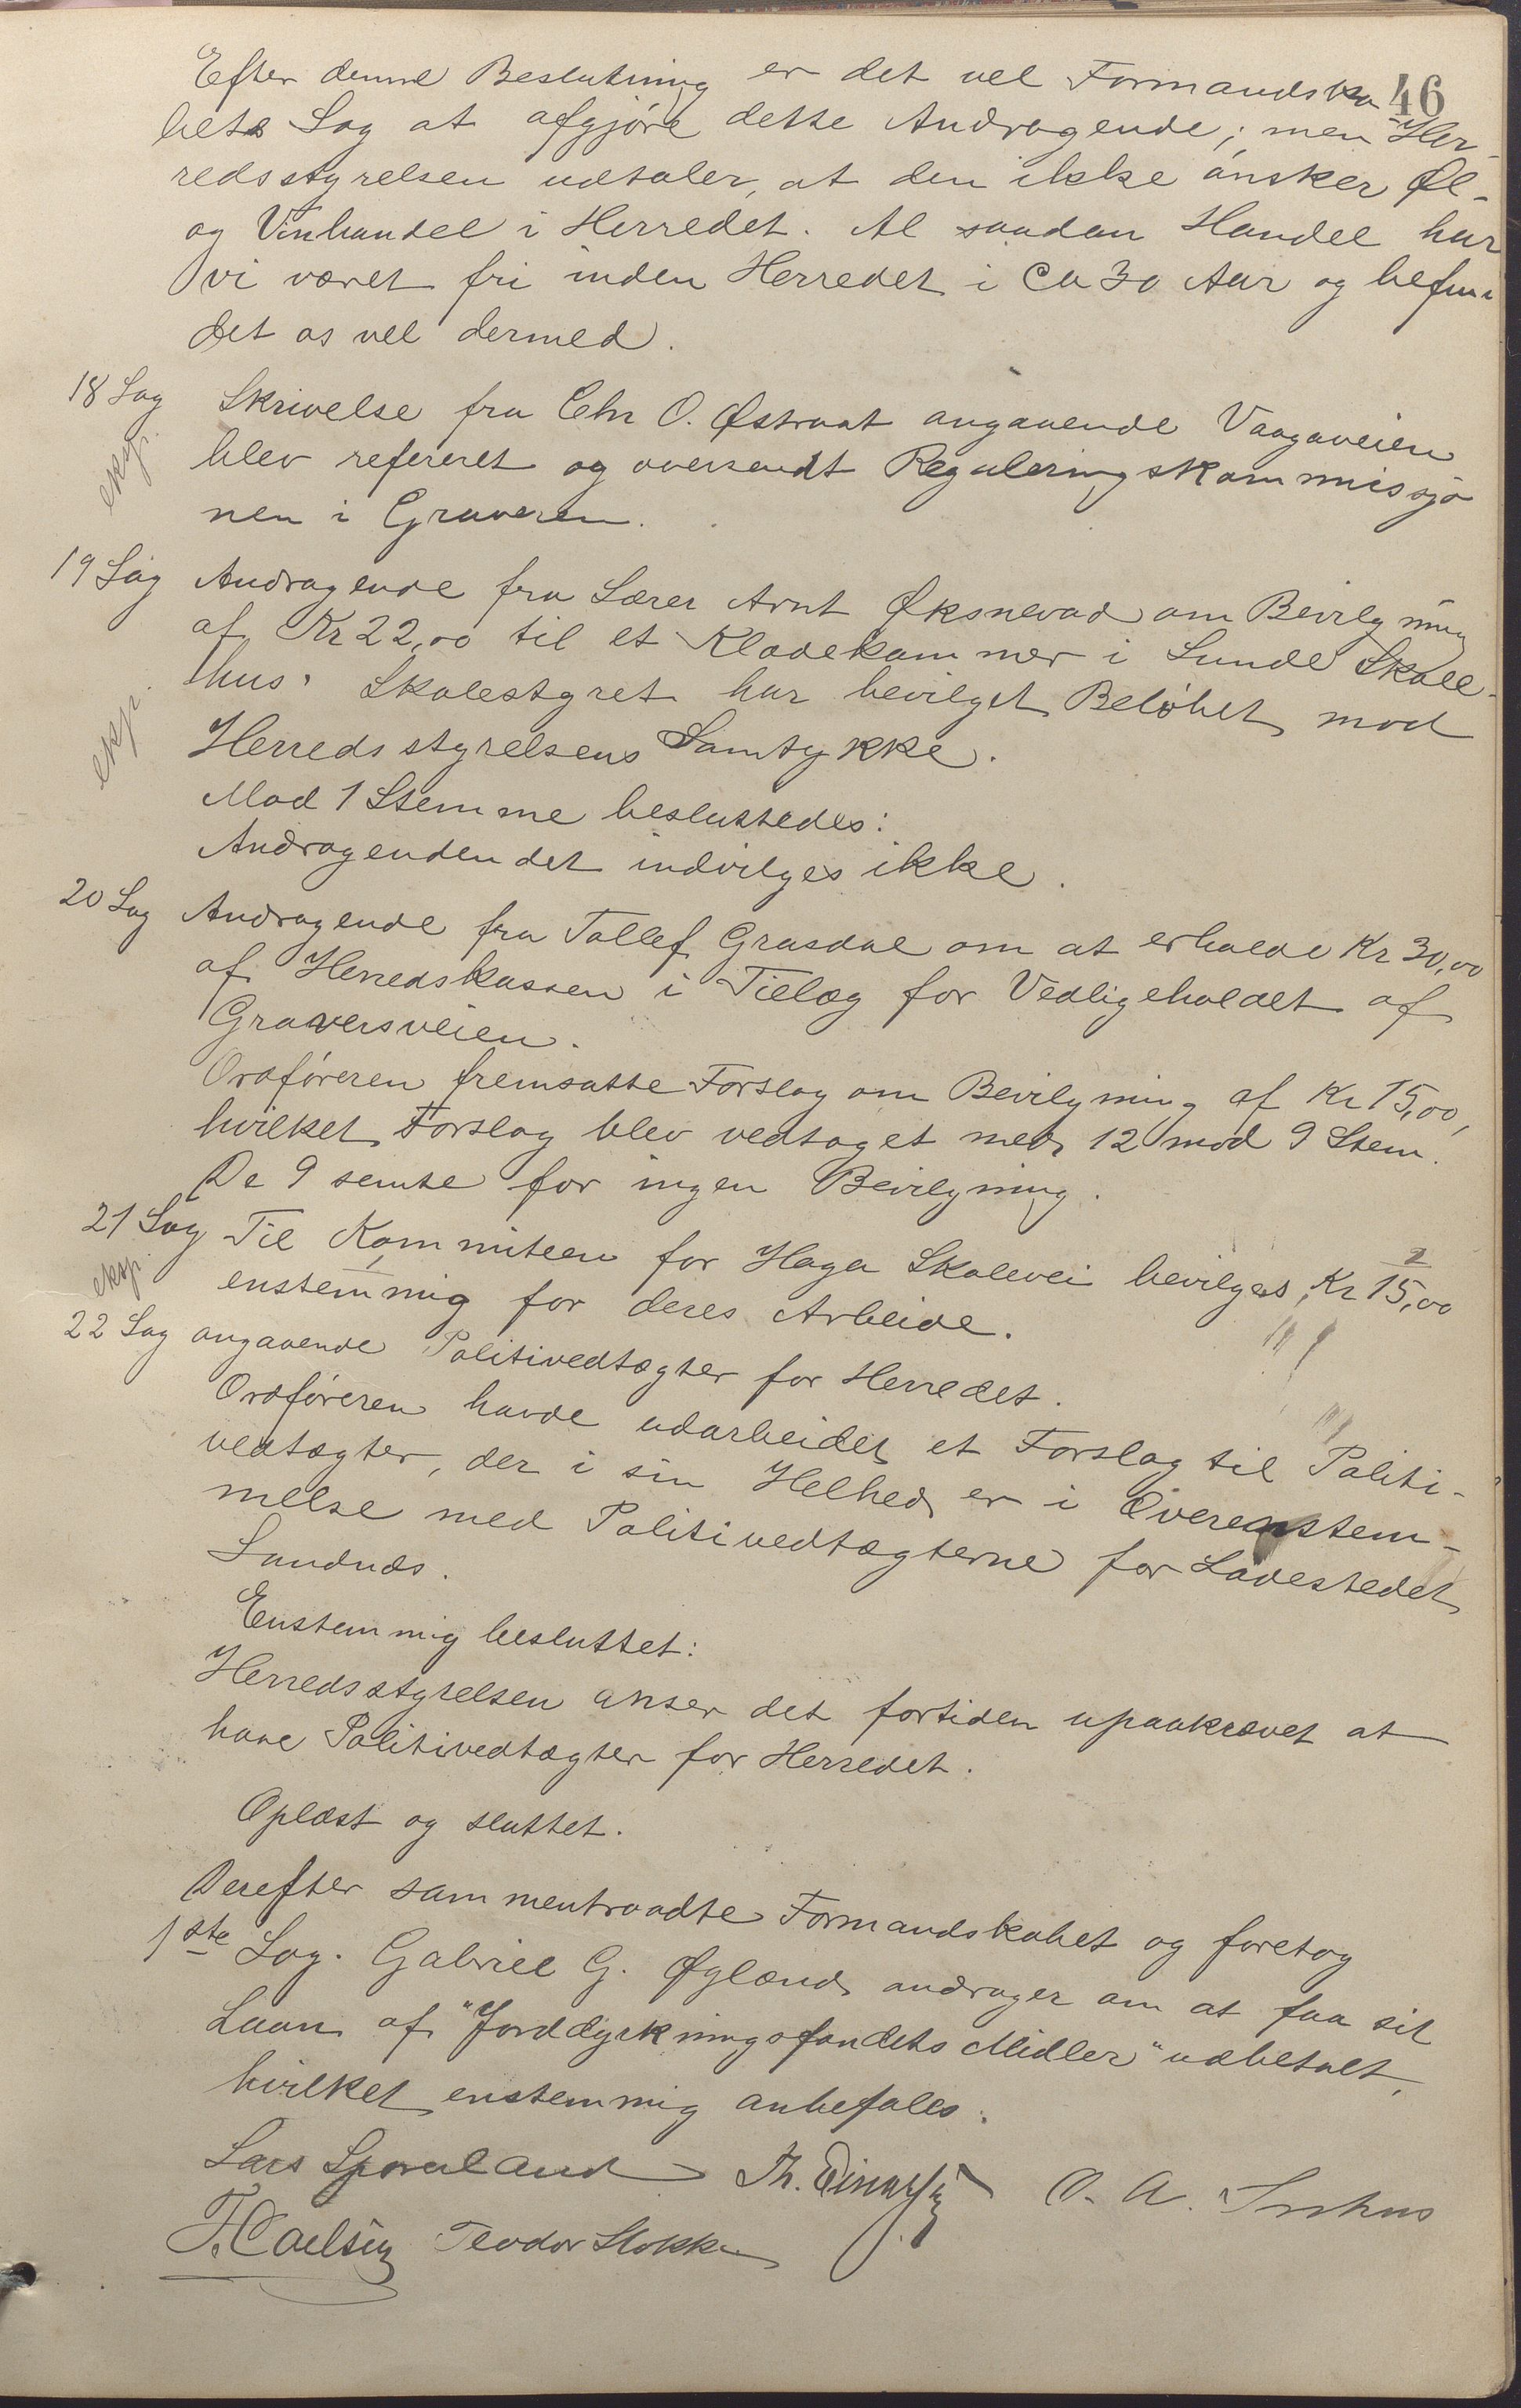 46
Efter denne Beslutning er det vel Formandska
bets Sag at afgjøre dette Andragende; men Her-
redsstyrelsen udtaler, at den ikke ønsker Øl-
og Vinhandel i Herredet. Al saadan Handel har
vi været fri inden Herredet i Ca 30 Aar og befun-
det os vel dermed.
18 Sag Skrivelse fra Chr O. Østraat angaaende Vaagaveien
eksp. blev refereret og oversendt Reguleringskommissjo
nen i Graveren.
19 Sag Andragende fra Lærer Arnt Øksnevad om Bevilgning
af Kr 22,00 til et Klædekammer i Lunde Skole-
hus. Skolestyret har bevilget Beløbet mod
eksp. Herredsstyrelsens Samtykke.
Mod 1 Stemme besluttedes:
Andragendendet indvilges ikke.
20 Sag Andragende fra Tollef Grasdal om at erholde Kr 30,00
af Herredskassen i Tillæg for Vedligeholdet af
Graversveien.
Ordføreren fremsatte Forslag om Bevilgning af Kr 15,00,
hvilket Forslag blev vedtaget med 12 mod 9 Stem.
De 9 semte for ingen Bevilgning.
21 Sag Til Kommiteen for Haga Skolevei bevilges Kr 15,00
eksp. enstemmig for deres Arbeide.
22 Sag angaaende Politivedtægter for Herredet.
Ordføreren havde udarbeidet et Forslag til Politi-
vedtægter, der i sin Helhed er i Overenstem-
melse med Politivedtægterne for Ladestedet
Sandnæs.
Enstemmig besluttet:
Herredsstyrelsen anser det fortiden upaakrævet at
have Politivedtægter for Herredet.
Oplæst og sluttet.
Derefter sammentraadte Formandskabet og foretog
1ste Sag. Gabriel G. Øglænd andrager om at faa sit
Laan af "Jorddyrkningsfondets Midler" udbetalt,
hvilket enstemmig anbefales.
Lars Th. O. A.
Teodor Stokke